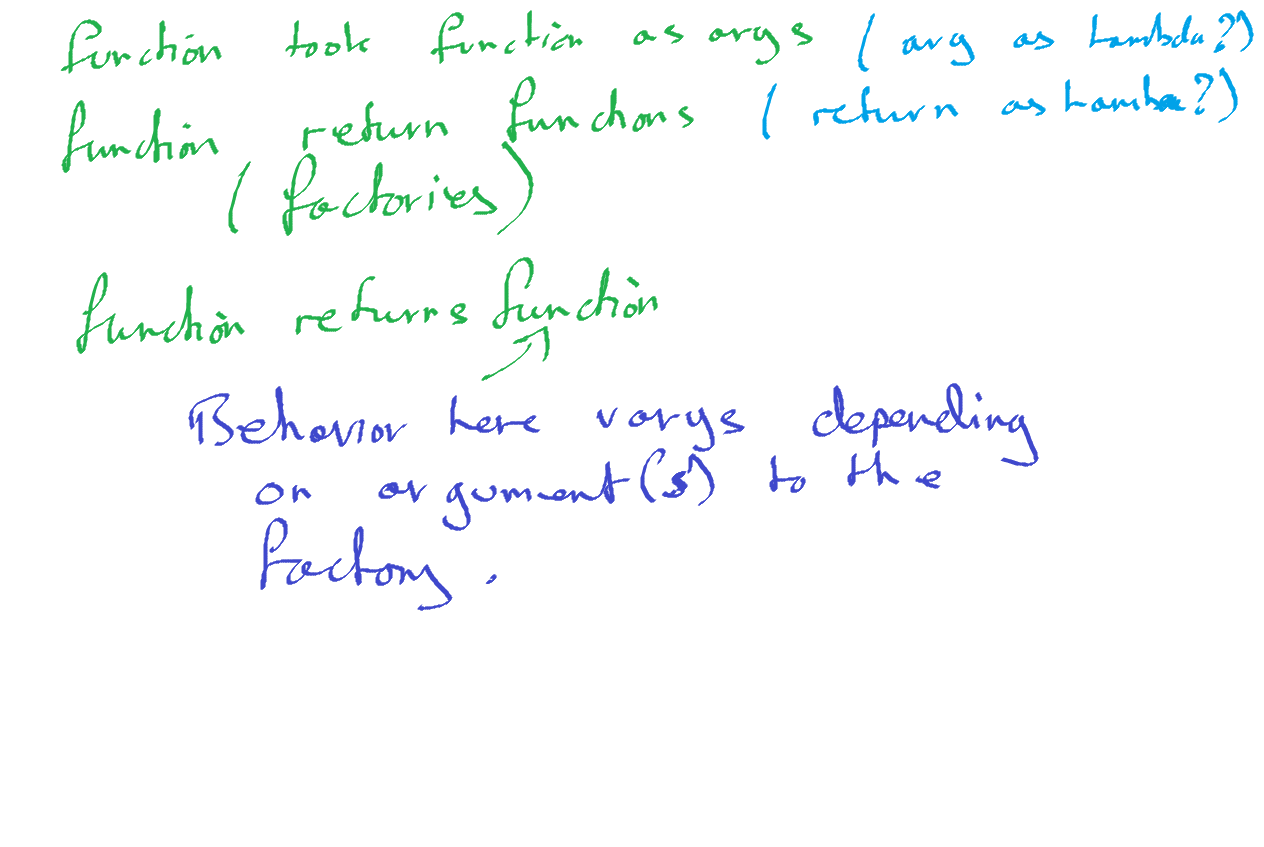 function took function as args (arg as Lambda?)
function return functions (return as Lambda?)
(factories)
function returns function
Behavior here varys depending
on argument(s) to the
factory.